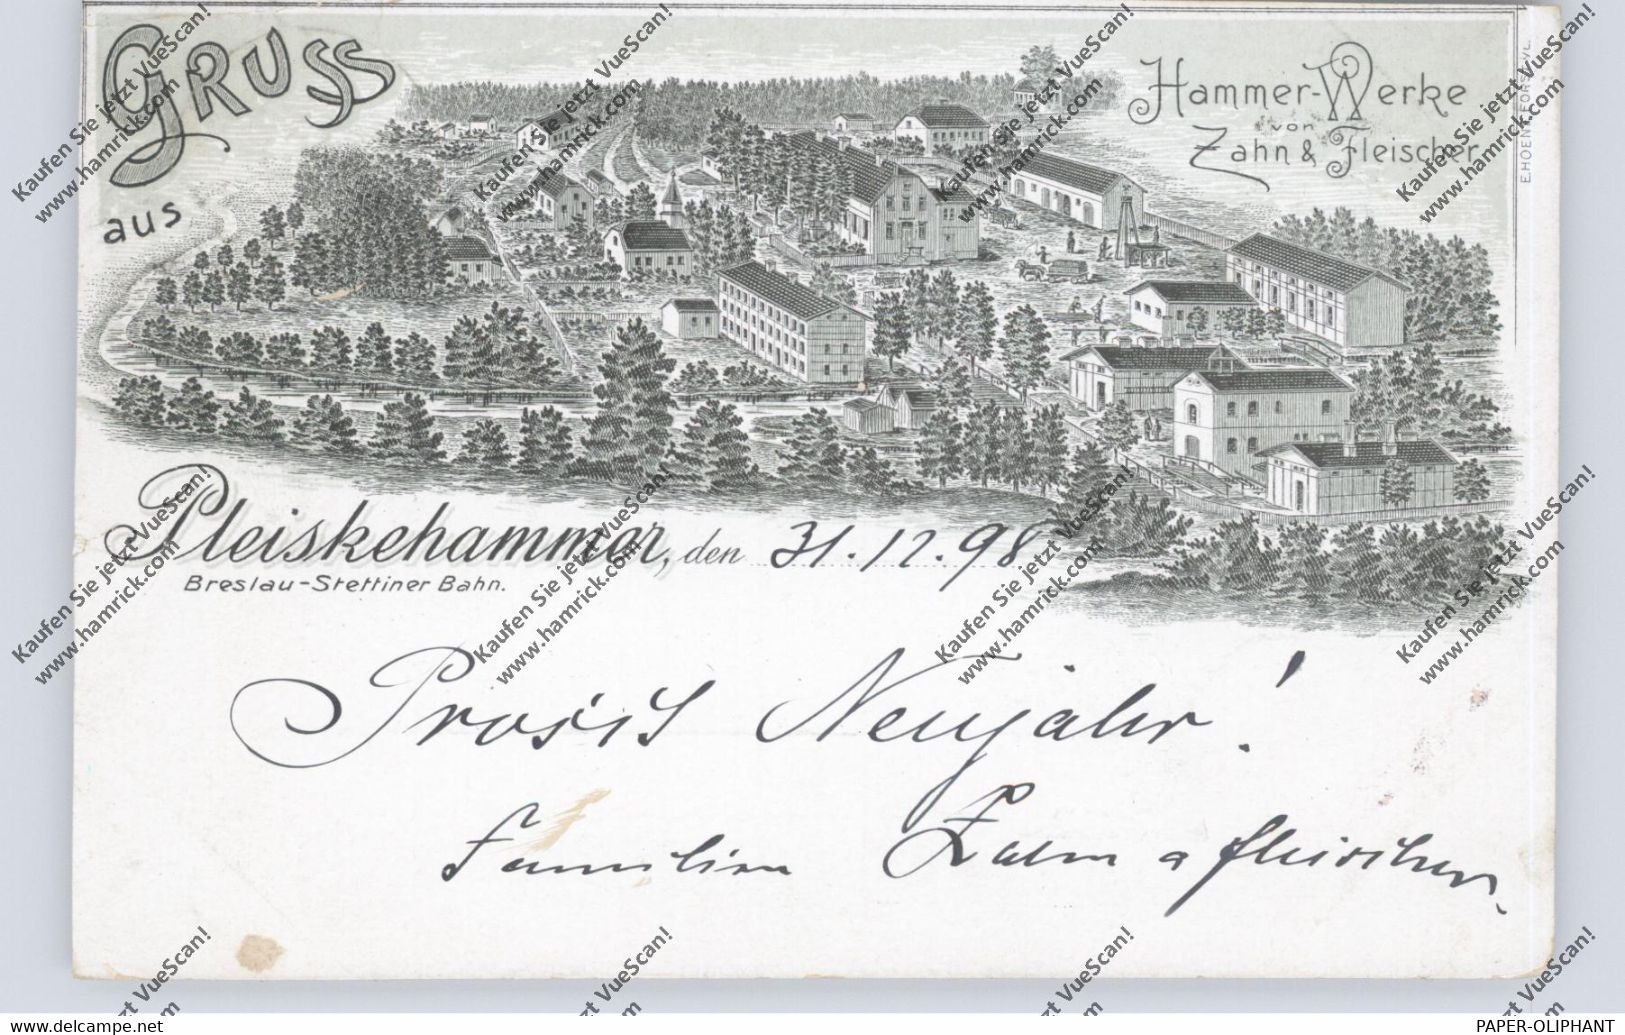 Gruss
aus
Hammer-Werke
von
Zahn & Fleischer
Pleiskehammer, den 31.12.98.
Breslau-Stettiner Bahn.
Prosit Neujahr!
Familien Zahn & Fleischer.
Kaufen Sie jetzt VueScan!
www.hamrick.com
www.delcampe.net
PAPER-OLIPHANT